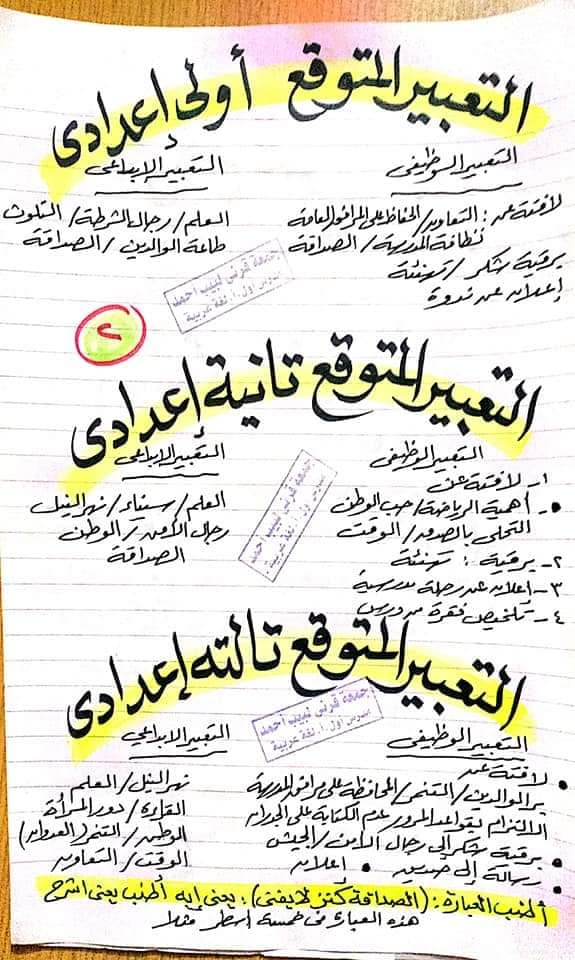 التعبير المتوقع أولى إعدادى
التعبير الوظيفى
لافتة عن: التعاون/الحفاظ على المرافق العامة
نظافة المدرسة/ الصداقة
برقية شكر/تهنئة
إعلان عن ندوة
التعبير الإبداعى
العلم/رجال الشرطة/التلوث
طاعة الوالدين/الصداقة
جمعة قرنى لبيب احمد
مدرس اول أ. لغة عربية
٢
التعبير المتوقع تانية إعدادى
التعبير الوظيفى
١- لافتة عن
أهمية الرياضة/حب الوطن
التحلى بالصدق/الوقت
٢- برقية: تهنئة
٣- إعلان عن رحلة مدرسية
٤- تلخيص فقرة من درس
التعبير الإبداعى
العلم/سيناء/نهر النيل
رجال الأمن/الوطن
الصداقة
جمعة قرنى لبيب احمد
مدرس اول أ. لغة عربية
التعبير المتوقع تالته إعدادى
جمعة قرنى لبيب احمد
مدرس اول أ. لغة عربية
التعبير الوظيفى
لافتة عن
بر الوالدين/التنمر/المحافظة على مرافق المدرسة
الالتزام بقواعد المرور/عدم الكتابة على الجدران
برقية شكر إلى رجال الأمن/الجيش
رسالة إلى صديق • إعلان
التعبير الإبداعي
نهر النيل/العلم
القراءة/دور المرأة
الوطن/التنمر(العدوان)
الوقت/التعاون
أطنب العبارة: (الصداقة كنز لا يفنى): يعنى إيه أطنب يعنى اشرح
هذه العبارة فى خمسة أسطر مثلا